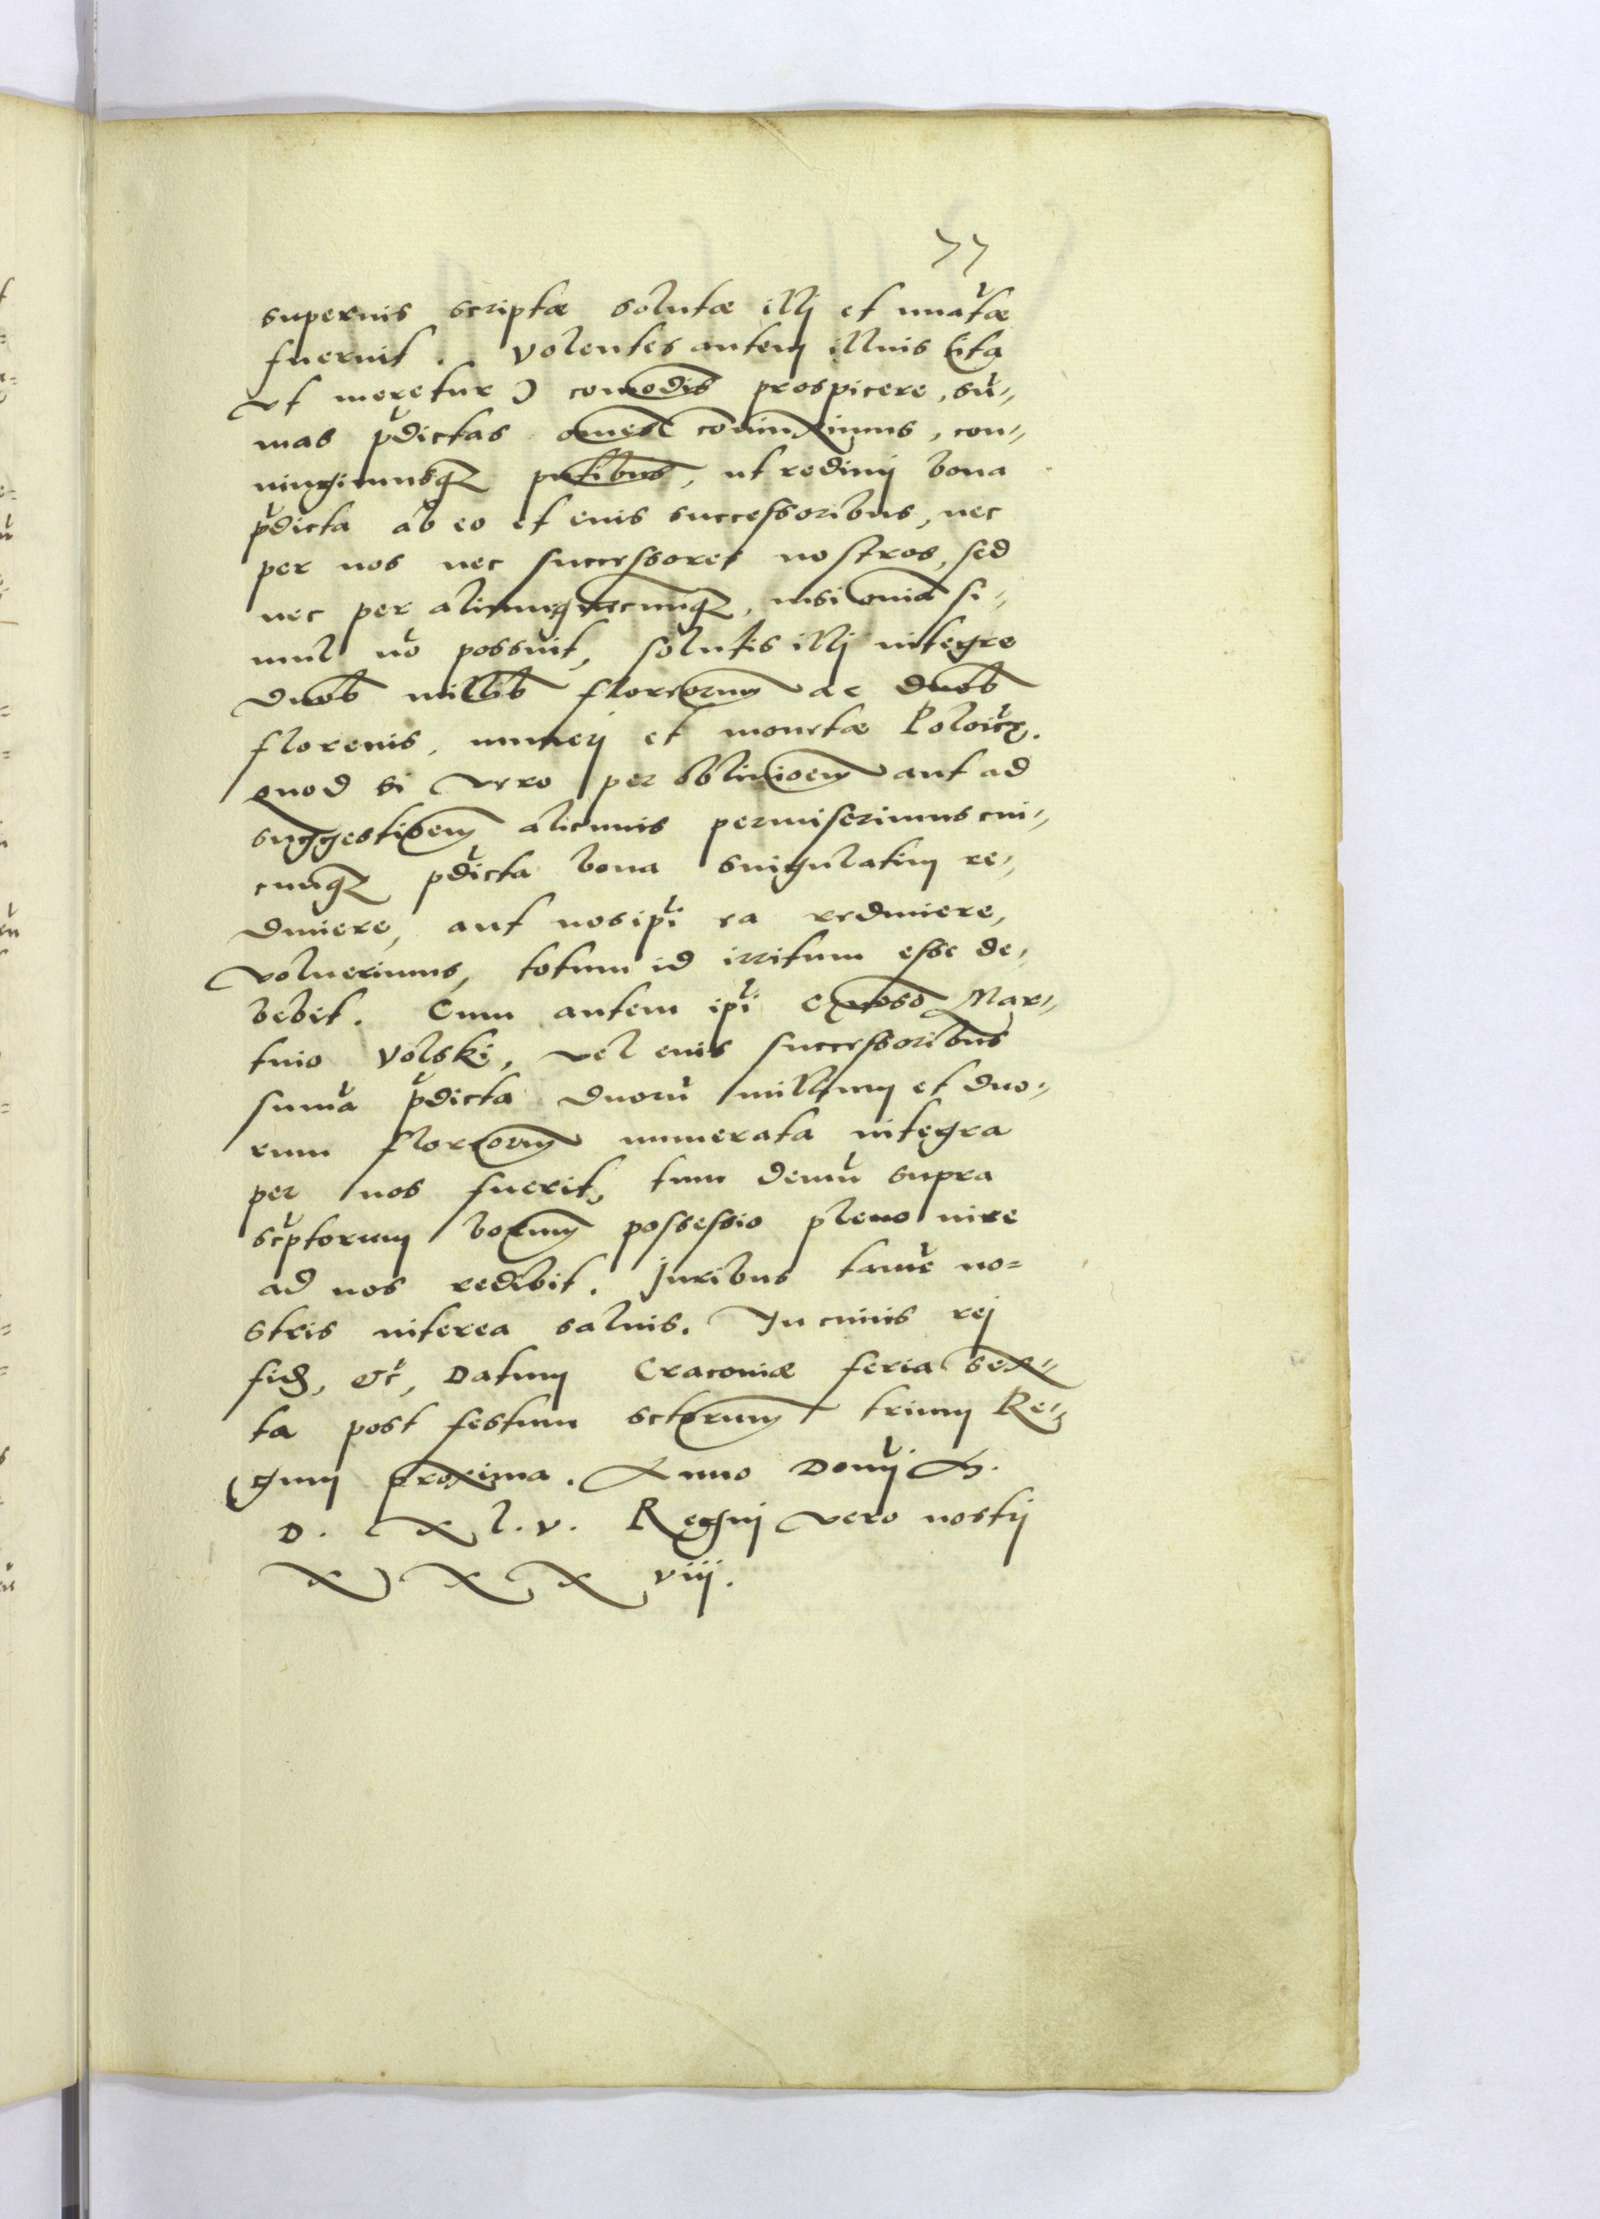 77
superius scriptæ solutæ illi et nũatæ
fuerint. Volentes autem illius (ita
ut meretur) comodis prospicere, sũ-
mas p̃dictas omnes coniunximus, con-
iungimusq; pñtibus, ut redimi bona
p̃dicta ab eo et eius successoribus, nec
per nos nec successores nostros, sed
nec per alium quecunq;, nisi omnia si-
mul nõ possint, solutis illi integre
duob. millib. florenorum ac duob.
florenis, numeri et monetæ Poloñcæ.
Quod si vero per oblivioem aut ad
suggestioem alicuius permiserimus cui-
cunq; p̃dicta bona singulatim re-
dimere, aut nosip̃i ea redimere,
voluerimus, totum id irritum esse de-
bebit. Cum autem ip̃i Gnoso Mar-
tino Volski, vel eius successoribus
sum̃a p̃dicta duorũ millium et duo-
rum florenorum numerata integra
per nos fuerit, tum demũ supra
sc̃ptorum bonorum possessio pleno iure
ad nos redibit. Juribus tamẽ no-
stris interea salvis. In cuius rei
fidẽ, &c̃, Datum Cracoviæ feria sex-
ta post festum sctorum trium Re-
gum proxima. Anno Domĩ M.
D. xl.v. Regni vero nostri
xxxviij.